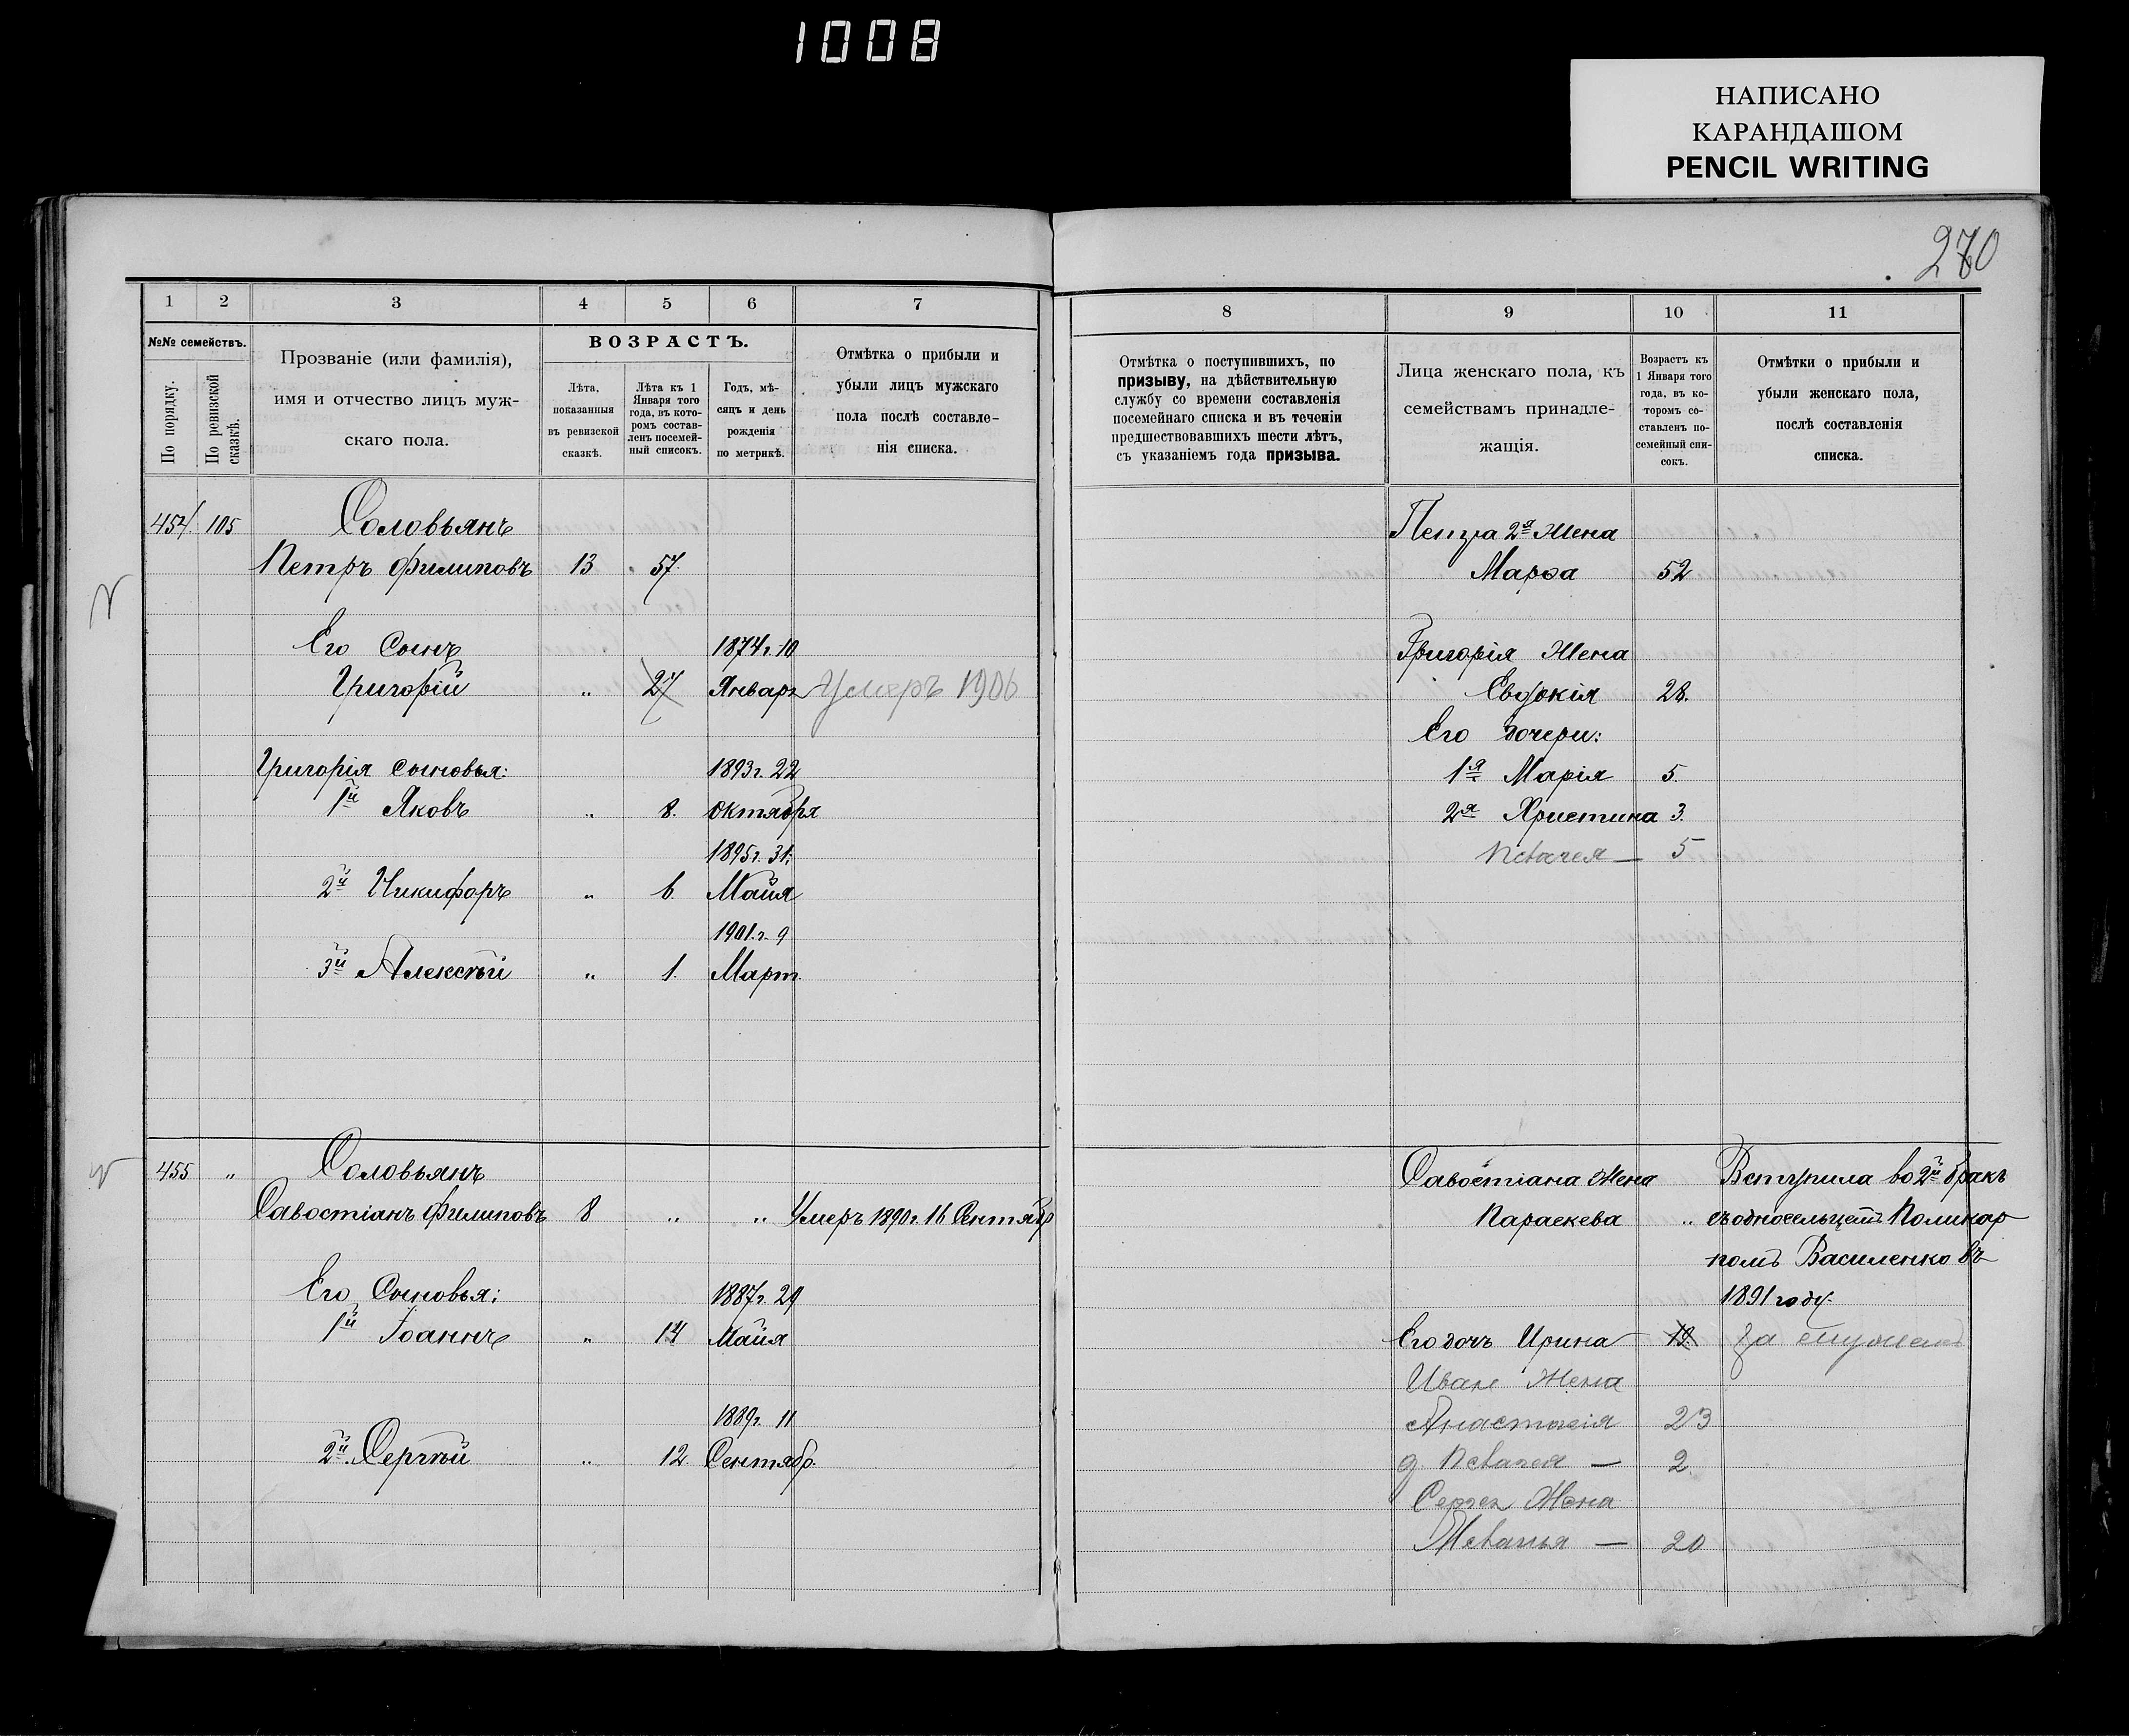 1008
НАПИСАНО
КАРАНДАШОМ
PENCIL WRITING
270
1 2 3 4 5 6 7
№№ семействъ.
По порядку.
По ревизской сказкѣ.
Прозваніе (или фамилія),
имя и отчество лицъ муж-
скаго пола.
ВОЗРАСТЪ.
Лѣта,
показанныя
въ ревизской
сказкѣ.
Лѣта къ 1
Января того
года, въ кото-
ромъ состав-
ленъ посемей-
ный списокъ.
Годъ, мѣ-
сяцъ и день
рожденія
по метрикѣ.
Отмѣтка о прибыли и
убыли лицъ мужскаго
пола послѣ составле-
нія списка.
454. 105 Соловьянъ
Петръ Филиповъ 13 57.
Его Сынъ 1874г. 10
Григорій „ 27 Январ. Умеръ 1906
Григорія сыновья: 1893г. 22
1й Яковъ „ 8. октября
1895г. 31.
2й Никифоръ „ 6. Майя
1901.г. 9
3й Алексѣй „ 1. Март.
455 „ Соловьянъ
Савостіанъ Филиповъ 8 „ „ Умеръ 1890г. 16 Сентябр
Его Сыновья: 1887г. 29
1й Іоаннъ „ 14 Майя
1889г. 11
2й Сергѣй „ 12. Сентябр.
8 9 10 11
Отмѣтка о поступившихъ, по
призыву, на дѣйствительную
службу со времени составленія
посемейнаго списка и въ теченіи
предшествовавшихъ шести лѣтъ,
съ указаніемъ года призыва.
Лица женскаго пола, къ
семействамъ принадле-
жащія.
Возрастъ къ
1 Января того
года, въ ко-
торомъ со-
ставленъ по-
семейный спи-
сокъ.
Отмѣтки о прибыли и
убыли женскаго пола,
послѣ составленія
списка.
Петра 2я Жена
Марѳа 52
Григорія Жена
Евдокія 28.
Его дочери:
1я Марія 5.
2я Христина 3.
5
Савостіана Жена Вступила во 2й бракъ
Параскева „ съ односельцемъ Поликар
помъ Василенко въ
1891 году.
Его дочь Ирина 19. За
Иван Жена
Анастасія 23
д 2
Сергея Жена
20